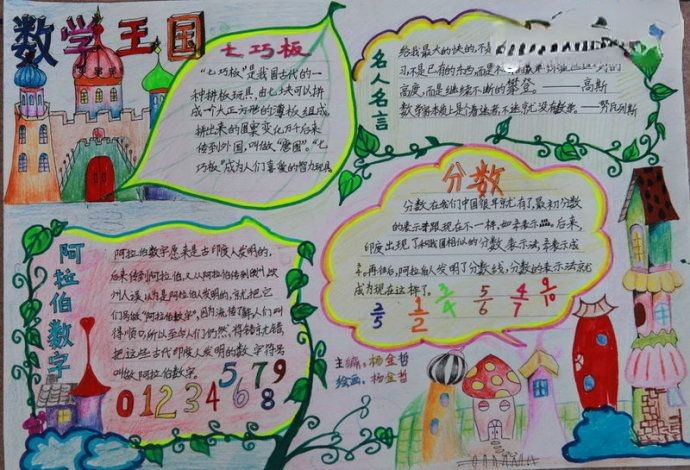 数学王国
七巧板
“七巧板”是我国古代的一
种拼板玩具,由七块可以拼
成一个大正方形的薄板组成,
拼出来的图案变化万千后来
传到外国,叫做“唐图”,“七
巧板”成为人们喜爱的智力玩具
名人名言
给我最大的快的,不是
已有的东西,而是不
高度,而是继续不断的攀登。——高斯
数学家本质上是个着迷者,不迷就没有数学。——努瓦列斯
分数
分数在我们中国很早就有了,最初分数
的表示跟现在不一样,
后来,
印度出现了和我国相似的分数表示法,
再往后,阿拉伯人发明了分数线,分数的表示法就
成为现在这样了。
3/5 1/2 3/4 5/6 4/7 9/10
阿拉伯数字
阿拉伯数字原来是古印度人发明的,
后来传到阿拉伯,又从阿拉伯传到欧州,欧
州人误以为是阿拉伯人发明的,就把它
们叫做“阿拉伯数字”,因为流传了解,人们叫
得顺口,所以至今人们仍然,将错就错,
把这些古代印度人发明的数字符号
叫做阿拉伯数字。
0 1 2 3 4 5 6 7 8 9
主编:杨金哲
绘画:杨金哲